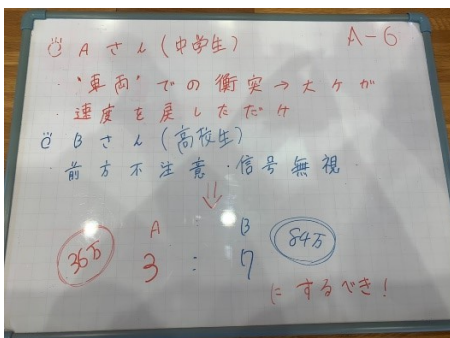 A-6
Aさん(中学生)
・"車両"での衝突→大ケガ
・速度を戻しただけ
Bさん(高校生)
・前方不注意・信号無視
⇓
A B
36万 3 : 7 84万
にするべき!